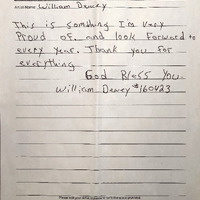 Artist Name: William Dewey
This is something I'm very
Proud of, and look Forward to
every year. Thank you For
everything
God Bless You.
William Dewey #160423